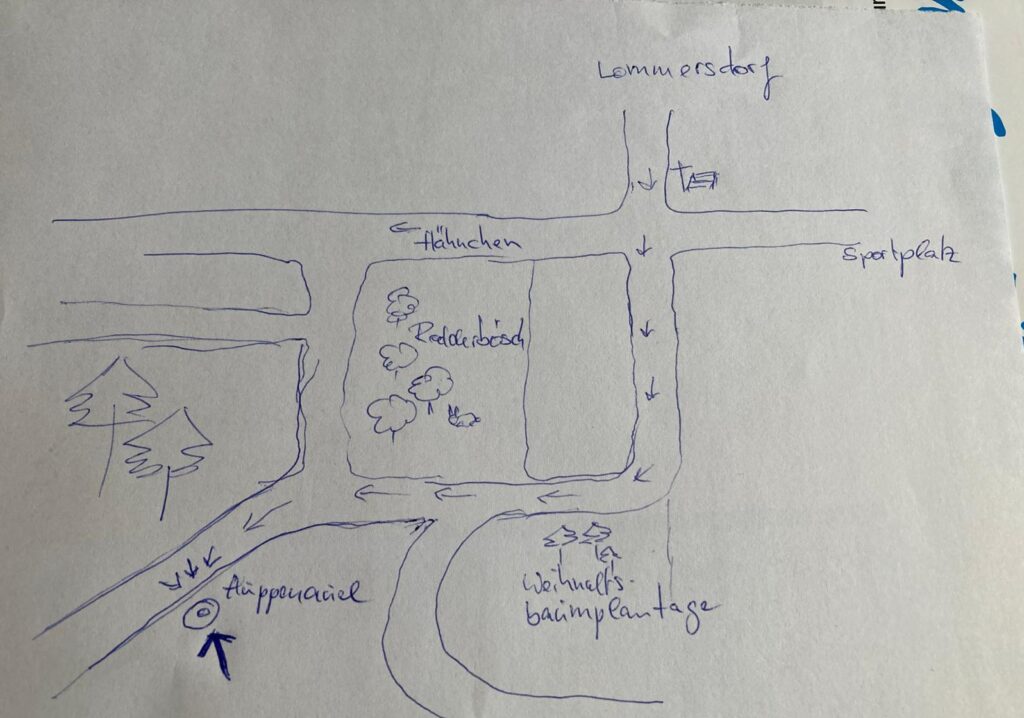 Lommersdorf
Hähnchen
Sportplatz
Redderbösch
Weihnachts-
baumplantage